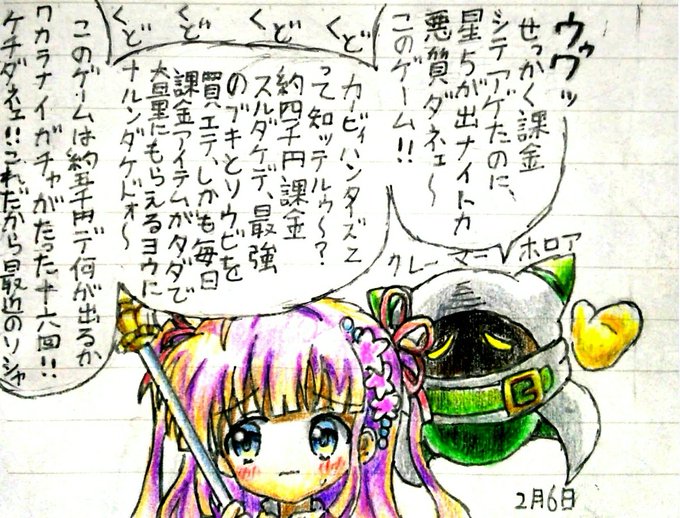 ウゥワッ
せっかく課金
シテアゲたのに、
星5が出ナイトカ
悪質ダネェ〜
このゲーム!!
くど
くど
くど
くど
カービィハンターズZ
って知ッテルゥ〜?
約四千円課金
スルダケデ、最強
のブキとソウビを
買エテ、しかも毎日
課金アイテムがタダで
大量にもらえるヨウに
ナルンダケドォ〜
このゲームは約五千円デ何が出るか
ワカラナイガチャがたった十六回!!
ケチダネェ!!これだから最近のソシャ
クレーマーホロア
2月6日